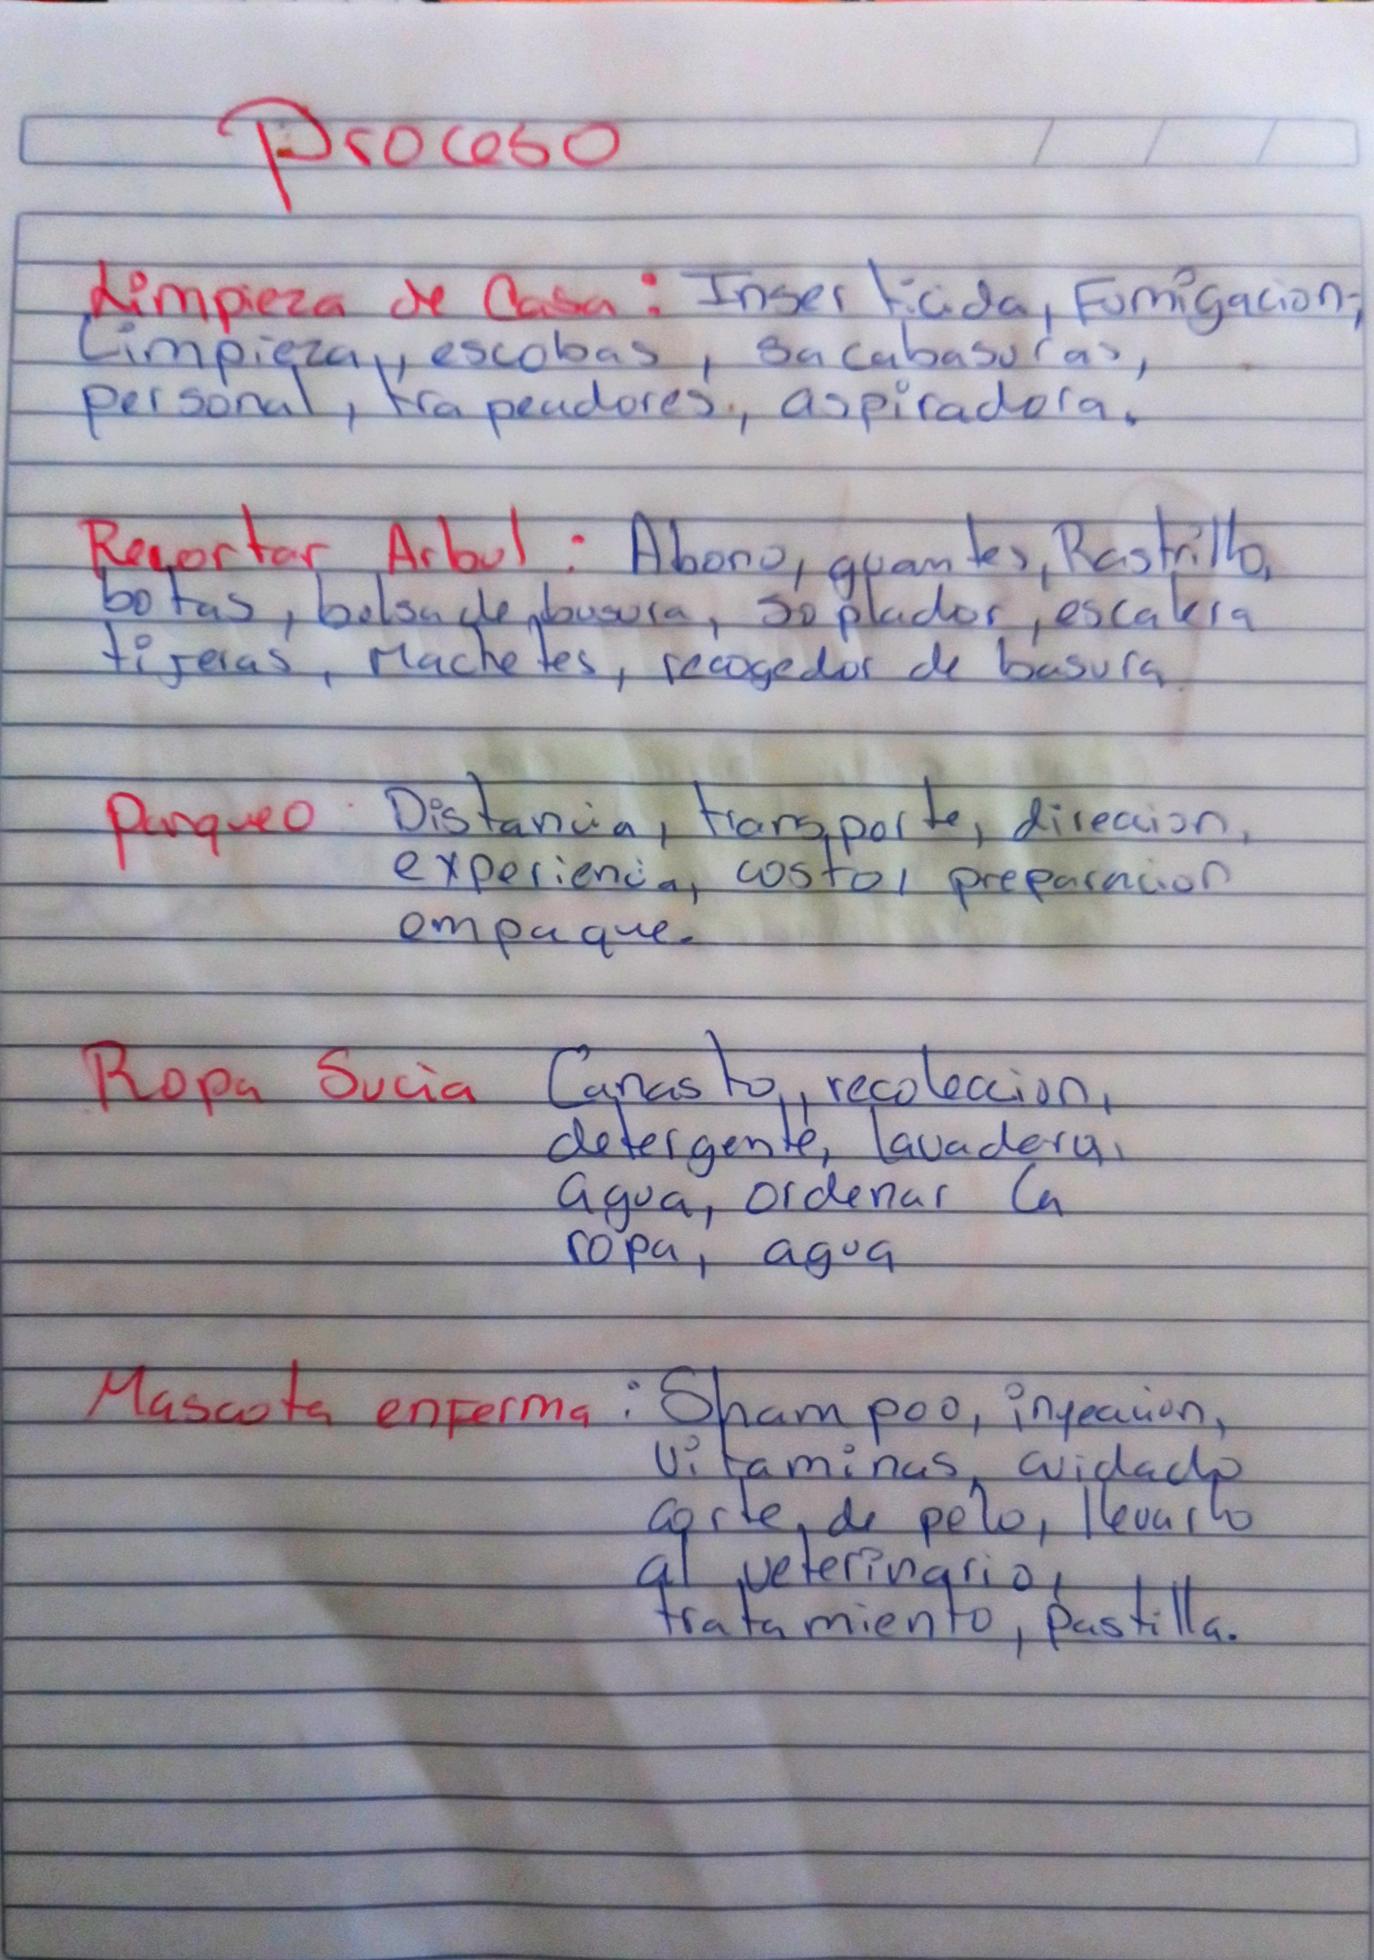 Proceso
Limpieza de Casa: Inserticida, Fumigacion,
Limpieza, escobas, sacabasuras,
personal, trapeadores, aspiradora.
Recortar Arbol: Abono, guantes, Rastrillo,
botas, bolsa de basura, soplador, escalera
tijeras, Machetes, recogedor de basura
parqueo Distancia, transporte, direccion,
experiencia, costo, preparacion
empaque.
Ropa Sucia Canasto, recoleccion,
detergente, lavadera,
agua, ordenar la
ropa, agua
Mascota enferma: Shampoo, inyeccion,
vitaminas, cuidado
corte de pelo, llevarlo
al veterinario,
tratamiento, pastilla.